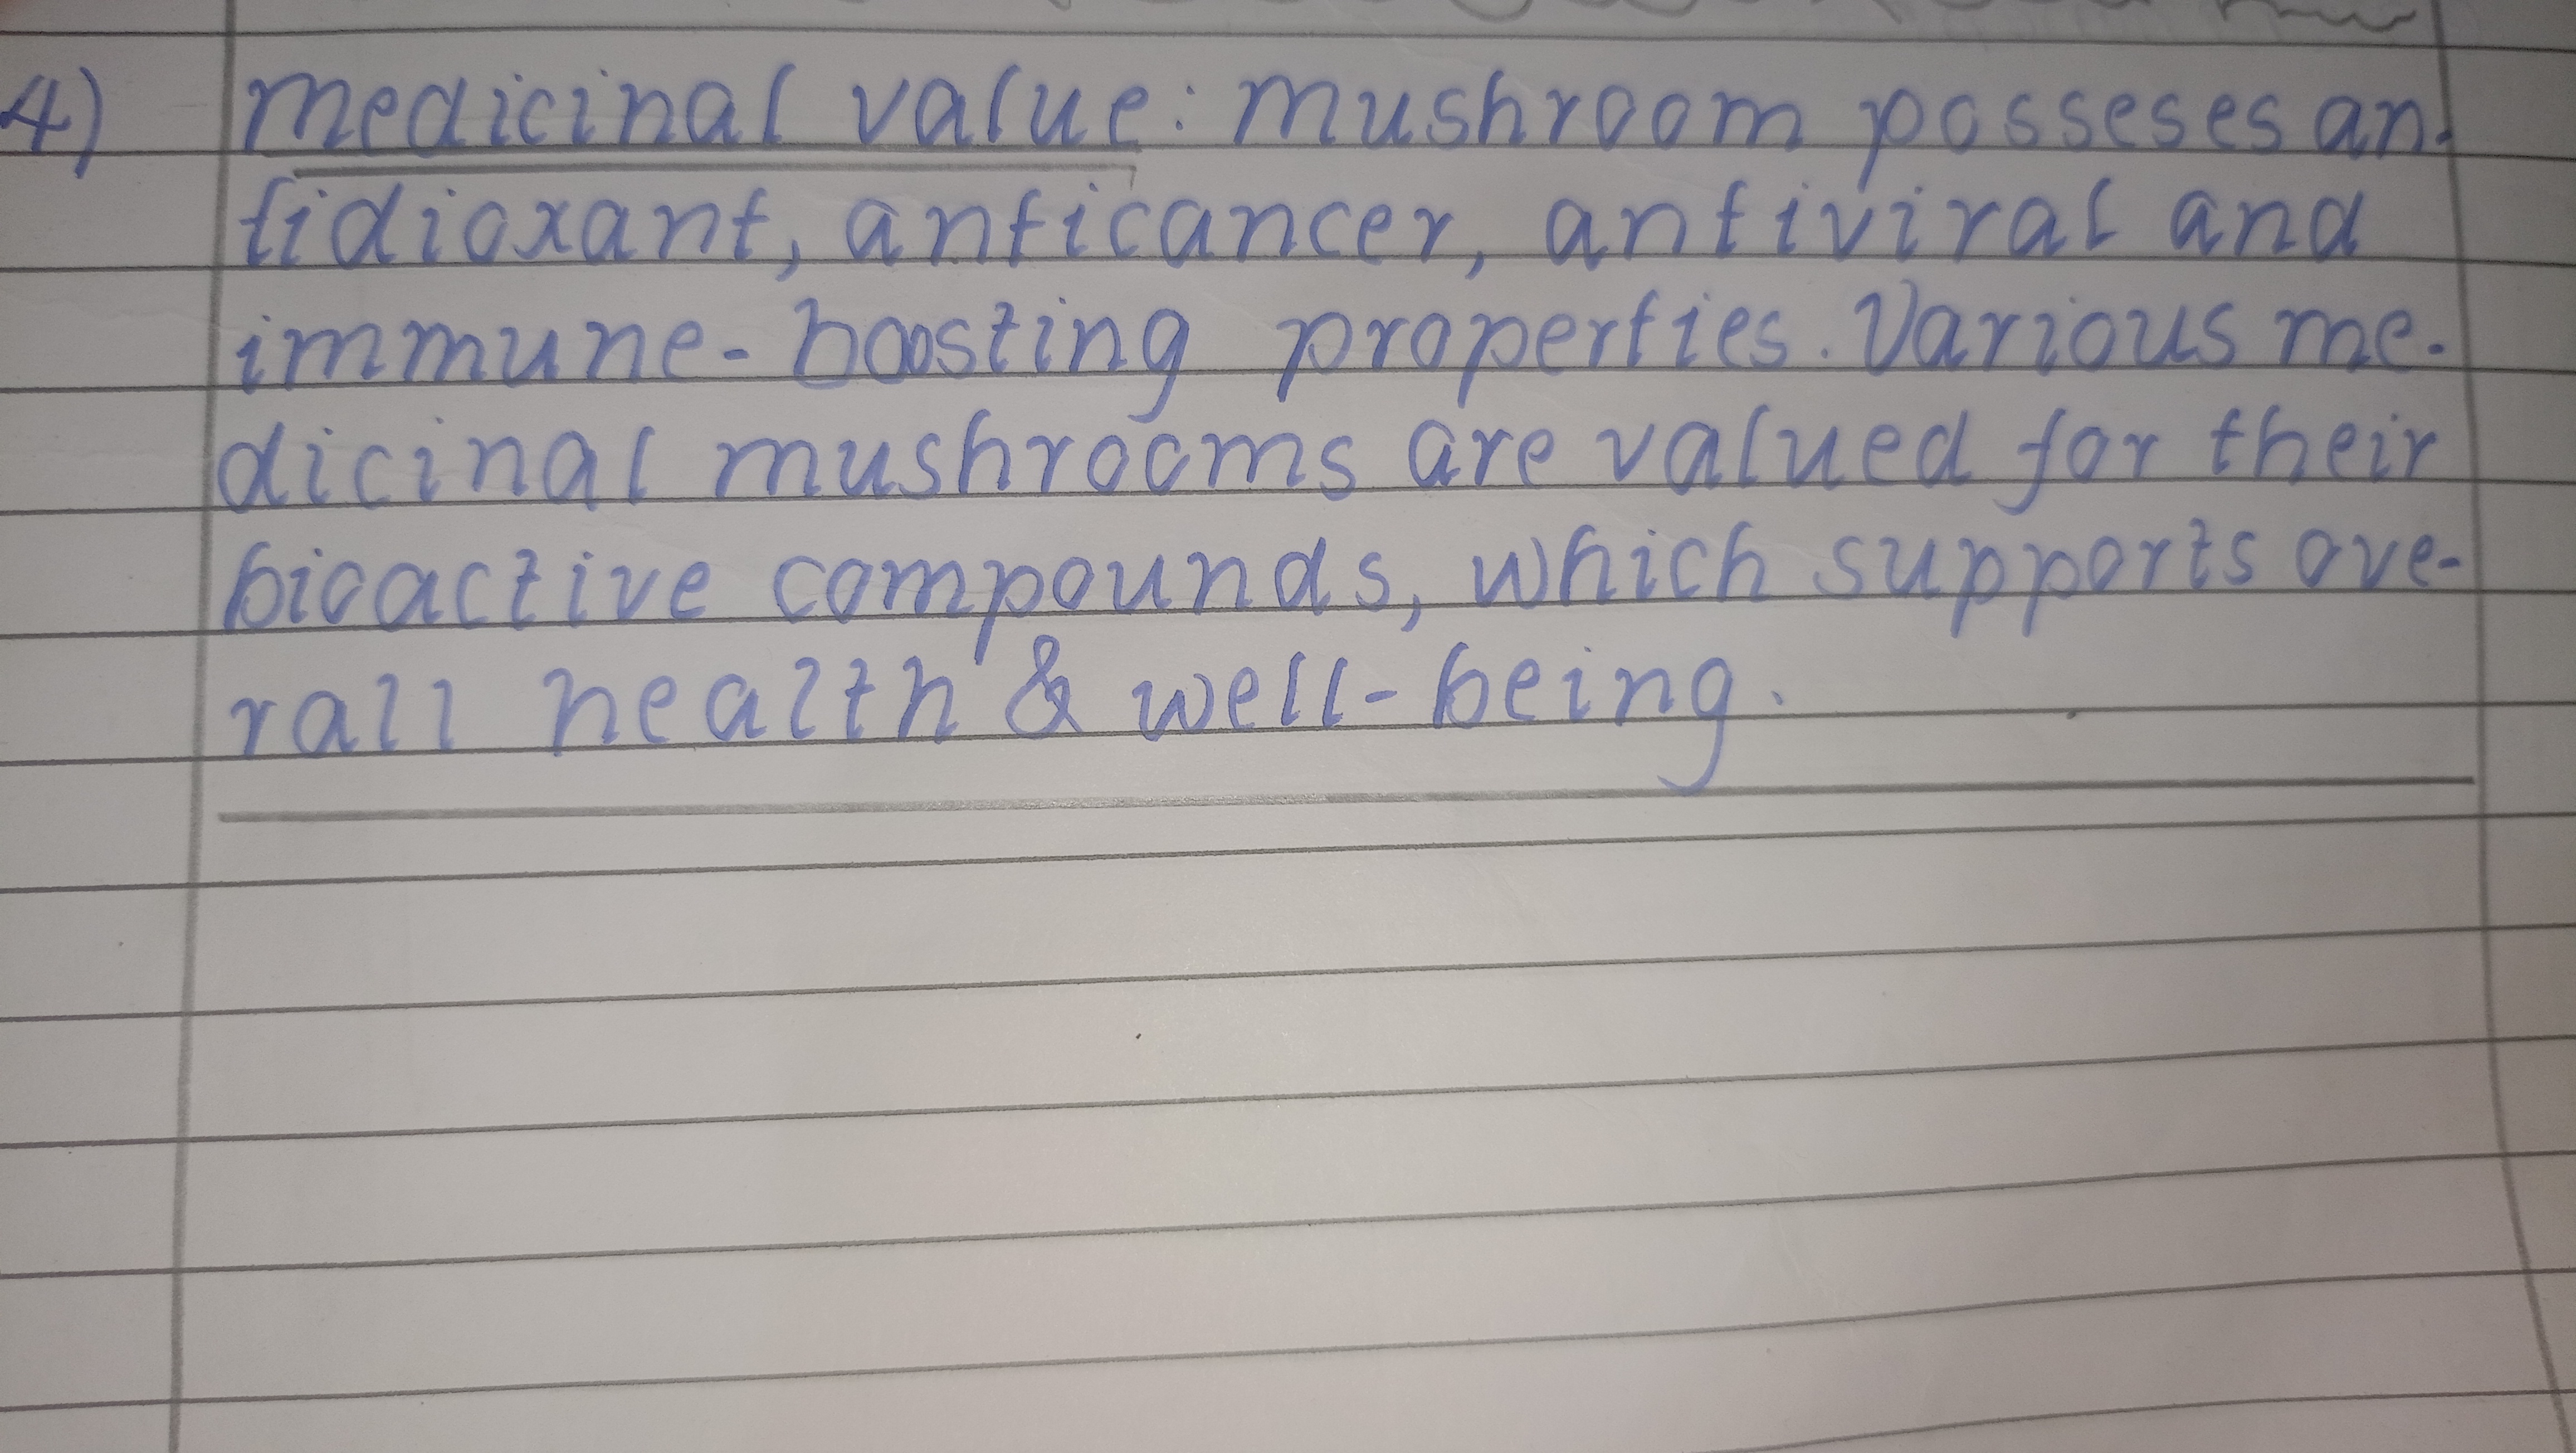 4) medicinal value: mushroom posseses an-
tidioxant, anticancer, antiviral and
immune-boosting properties. Various me-
dicinal mushrooms are valued for their
bioactive compounds, which supports ove-
rall health & well-being.